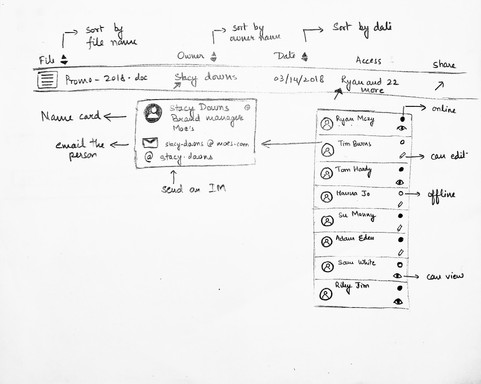 sort by
file name
sort by
owner name
Sort by date
File
Owner
Date
Access
share
Promo - 2018 . doc
Stacy downs
03/14/2018
Ryan and 22
more
Name card
Stacy Downs
Brand manager
Moe's
email the
person
stacy-downs @ moes.com
@ stacy.downs
send an IM
Ryan Mcey
online
Tim Burns
can edit
Tom Hardy
Hanna Jo
offline
Su Manny
Adam Eden
Sam White
can view
Riley Jim